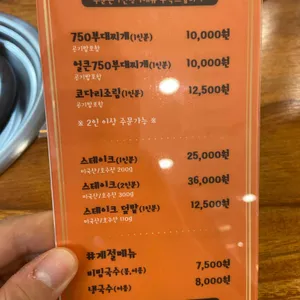 750부대찌개(1인분) 10,000원
공기밥포함
얼큰750부대찌개(1인분) 10,000원
공기밥포함
코다리조림(1인분) 12,500원
공기밥포함
※ 2인 이상 주문가능 ※
스테이크(1인분) 25,000원
미국산/호주산 200g
스테이크(2인분) 36,000원
미국산/호주산 300g
스테이크 덮밥(1인분) 12,500원
미국산/호주산 110g
#계절메뉴
비빔국수(봄,여름) 7,500원
냉국수(여름) 8,000원